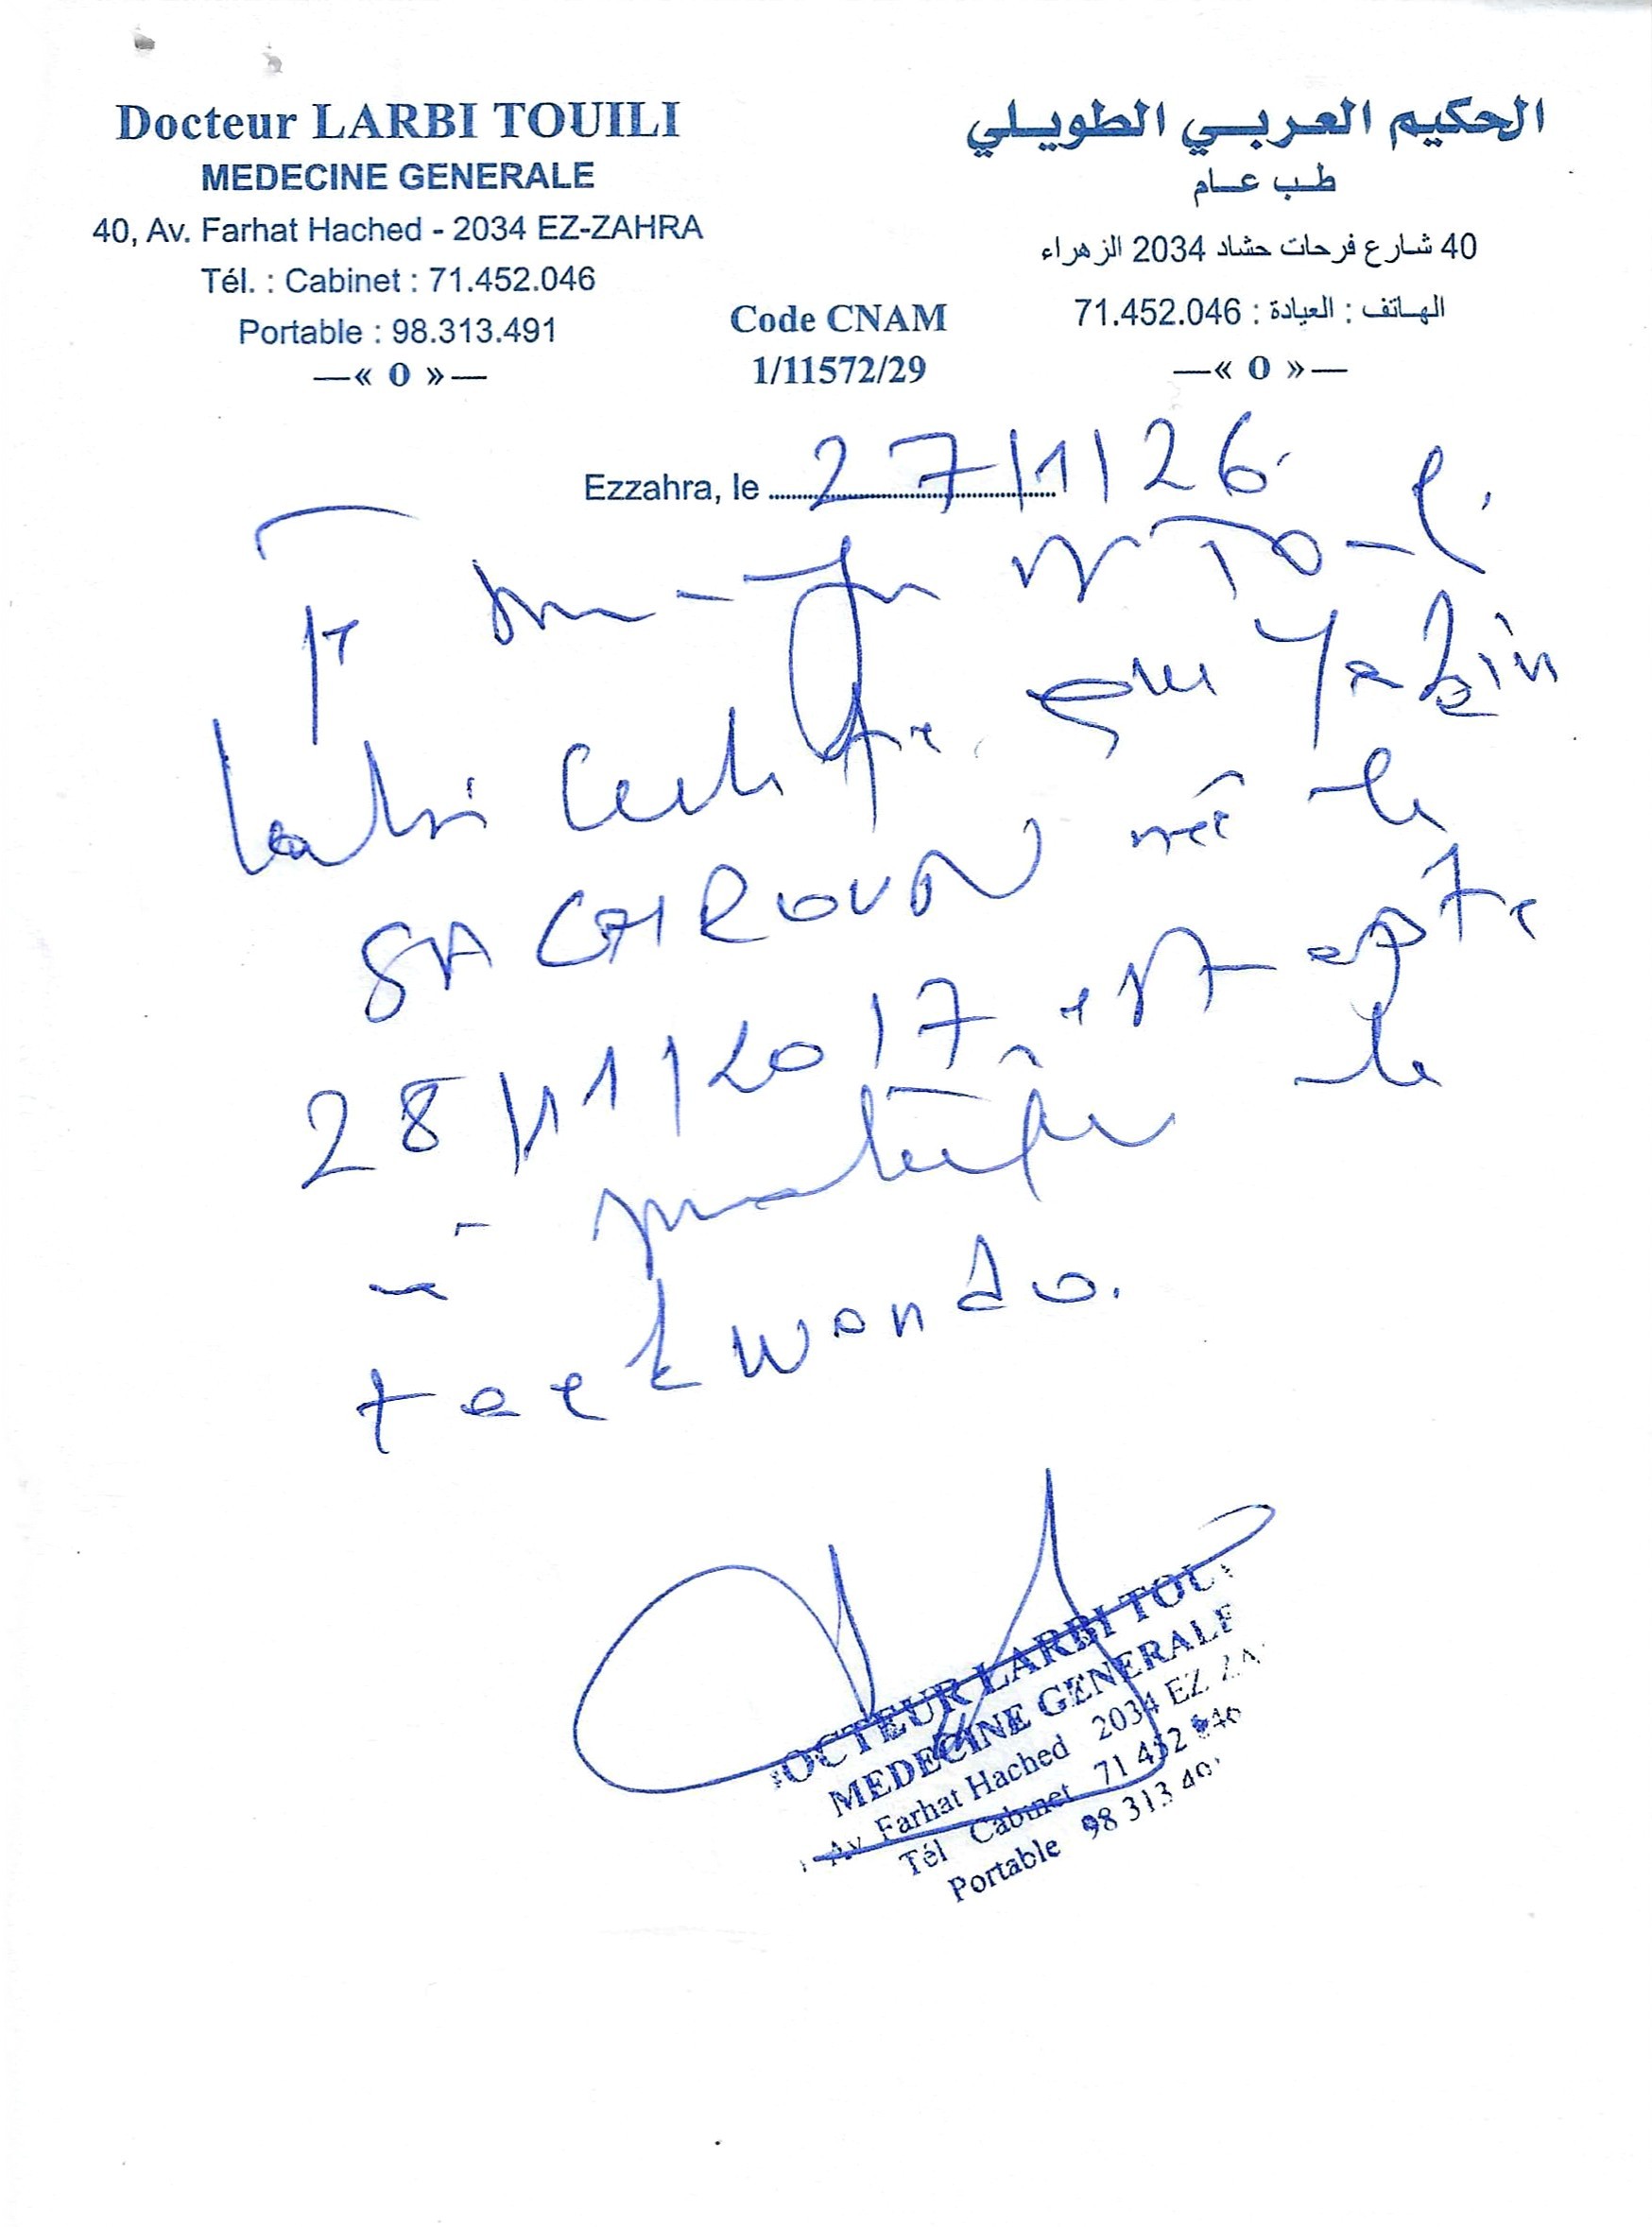 Docteur LARBI TOUILI
MEDECINE GENERALE
40, Av. Farhat Hached - 2034 EZ-ZAHRA
Tél. : Cabinet : 71.452.046
Portable : 98.313.491
—« 0 »—
الحكيم العربي الطويلي
طب عام
40 شارع فرحات حشاد 2034 الزهراء
الهاتف : العيادة : 71.452.046
—« 0 »—
Code CNAM
1/11572/29
Ezzahra, le 27/1/26
Larbi certifie que
né le
28/11/2017, est apte
à pratiquer le
taekwondo.
OCTEUR LARBI TOU
MEDECINE GENERALE
Av Farhat Hached 2034 EZ ZA
Tél Cabinet 71 452 046
Portable 98 313 49